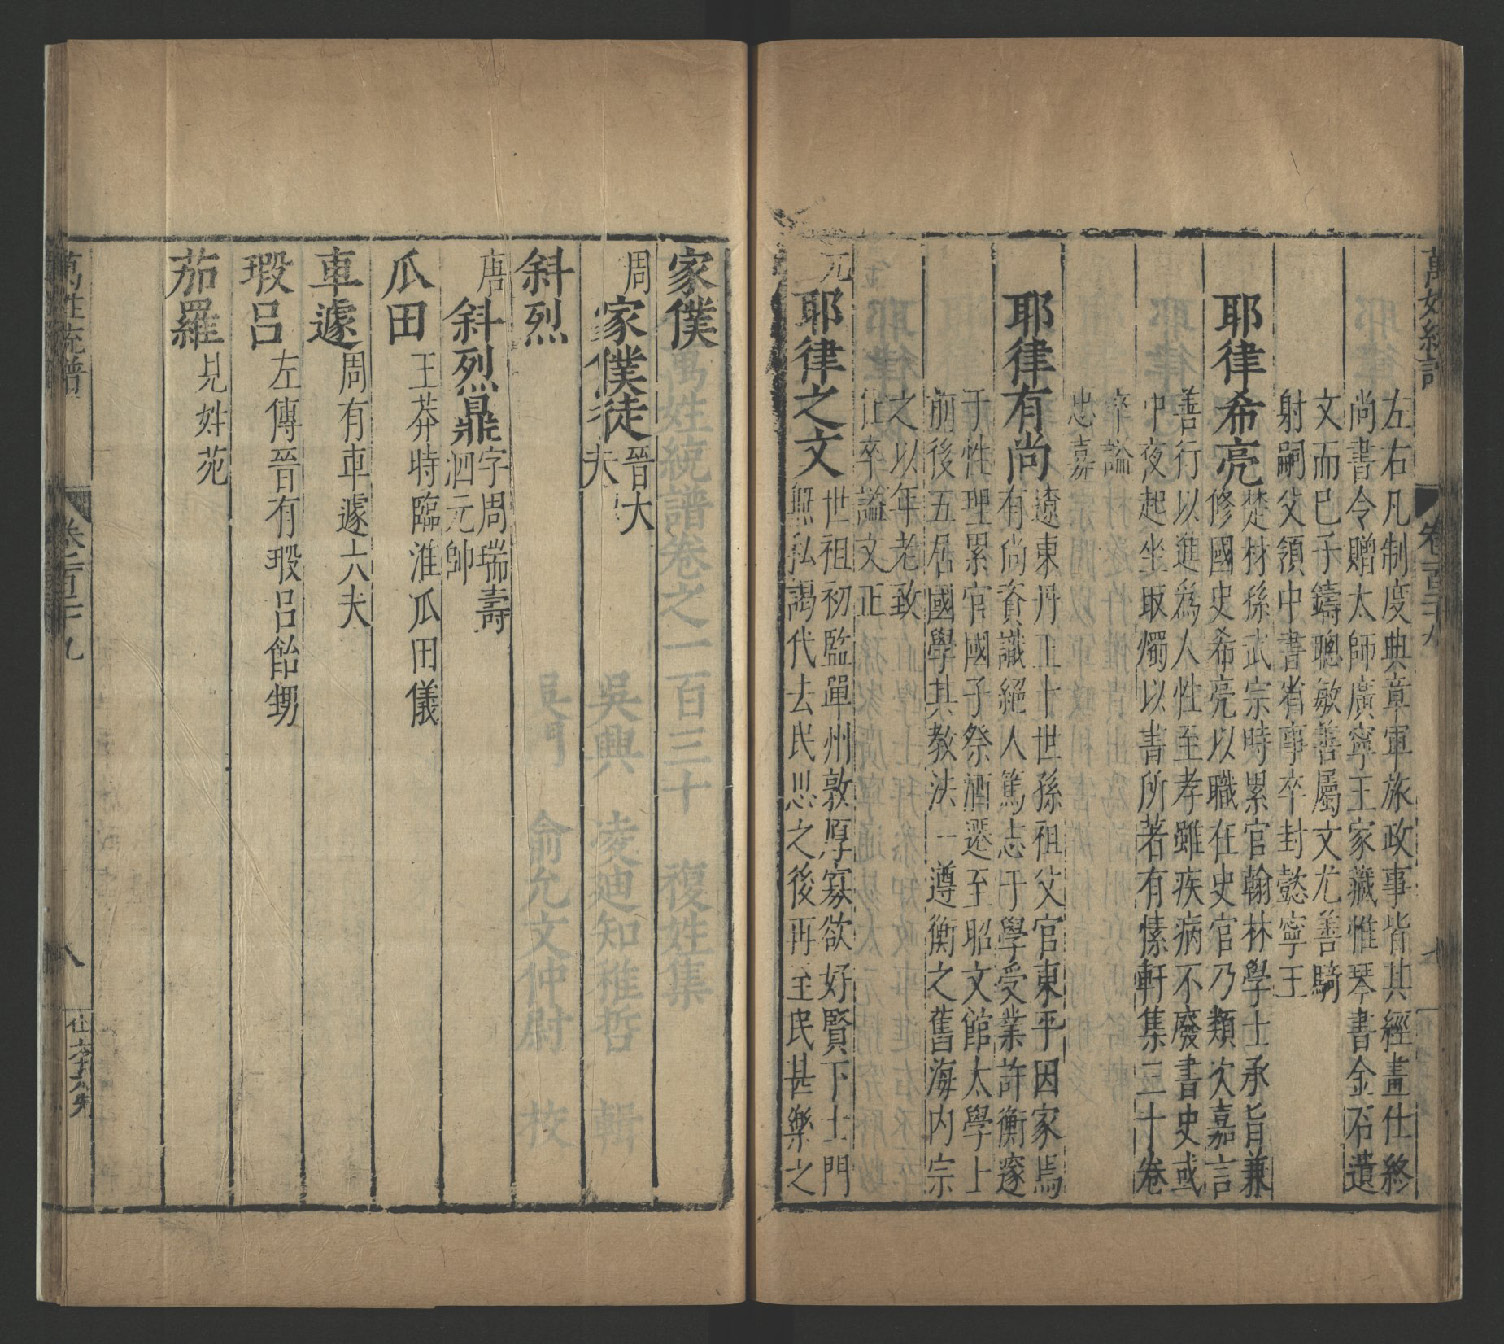 左右凡制度典章軍旅政事皆其經畫仕終
尚書令贈太師廣寧王家藏惟琴書金石遺
文而已子鑄聰敏善屬文尤善騎
射嗣父領中書省事卒封懿寧王
耶律希亮
楚材孫武宗時累官翰林學士承旨兼
修國史希亮以職在史官乃類次嘉言
善行以進為人性至孝雖疾病不廢書史或
中夜起坐取燭以書所著有愫軒集三十卷
卒諡
忠嘉
耶律有尚
遼東丹王十世孫祖父官東平因家焉
有尚資識絕人篤志于學受業許衡邃
于性理累官國子祭酒遷至昭文館大學士
前後五居國學其教法一遵衡之舊海內宗
之以年老致
仕卒諡文正
元
耶律之文
世祖初監單州敦厚寡欲好賢下士門
無私謁代去民思之後再至民甚樂之
家僕
周
家僕徒
晉大
夫
斜烈
唐
斜烈鼎
字周瑞壽
泗元帥
瓜田
王莽時臨淮瓜田儀
車遽
周有車遽大夫
瑕呂
左傳晉有瑕呂飴甥
茄羅
見姓苑
萬姓統譜
卷一百二十九
八